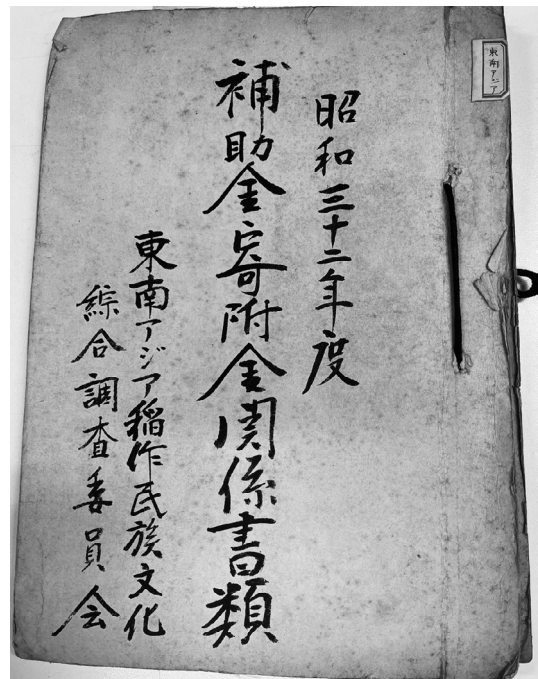 東南アジア
昭和三十二年度
補助金寄附金関係書類
東南アジア稲作民族文化
綜合調査委員会